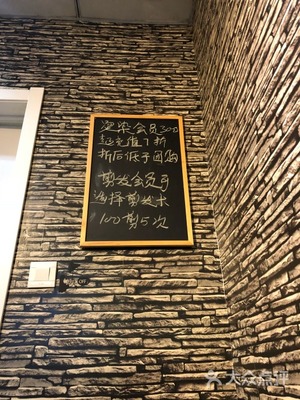 烫染会员300
起充值7折
折后低于团购
剪发会员可
选择剪发卡
100剪5次
大众点评